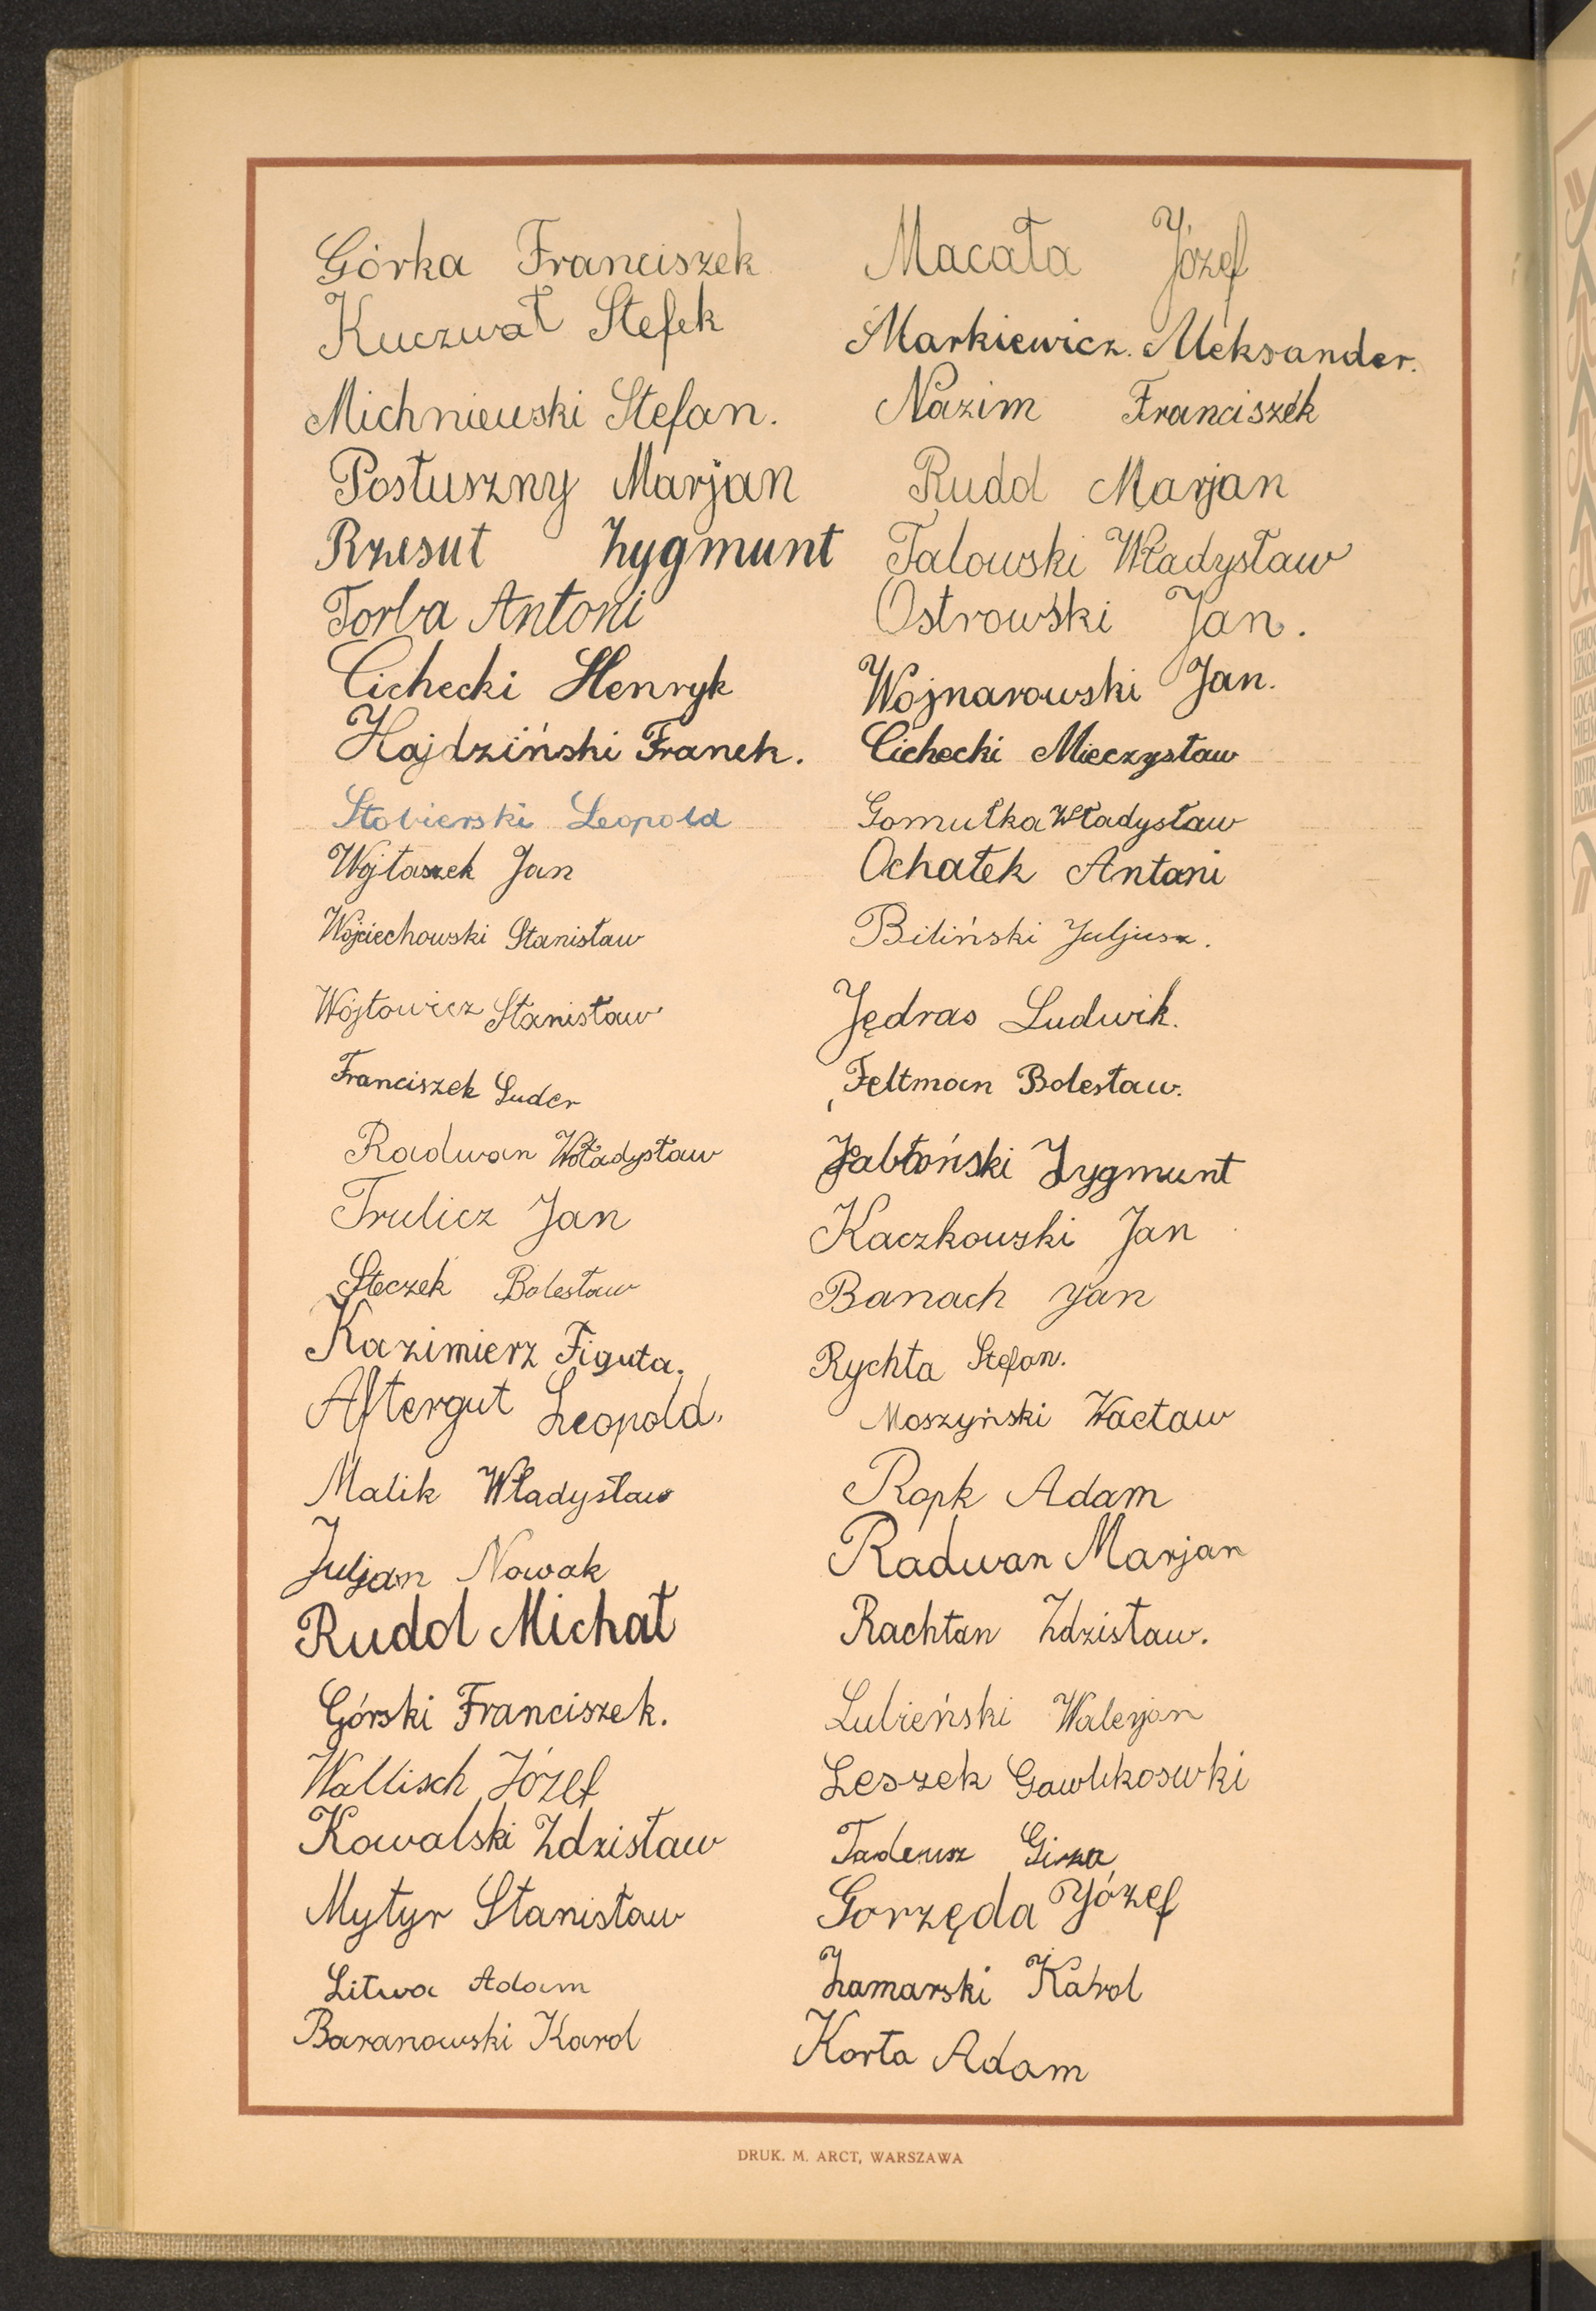 Górka Franciszek
Kuczwał Stefek
Michniewski Stefan.
Postuszny Marjan
Rzesut Zygmunt
Torba Antoni
Cichecki Henryk
Hajdziński Franek.
Stobierski Leopold
Wojtaszek Jan
Wojciechowski Stanisław
Wójtowicz Stanisław
Franciszek Luder
Radwan Władysław
Trulicz Jan
Steczek Bolesław
Kazimierz Figuta.
Aftergut Leopold.
Malik Władysław
Juljan Nowak
Rudol Michał
Górski Franciszek.
Wallisch Józef
Kowalski Zdzisław
Mytyr Stanisław
Litwa Adam
Baranowski Karol
Macała Józef
Markiewicz. Aleksander.
Nazim Franciszek
Rudd Marjan
Talowski Władysław
Ostrowski Jan.
Wojnarowski Jan.
Cichecki Mieczysław
Gomułka Władysław
Ochałek Antoni
Biliński Juljusz.
Jędras Ludwik.
Feltman Bolesław.
Jabłoński Zygmunt
Kaczkowski Jan
Banach Jan
Rychta Stefan.
Moszyński Wacław
Ropk Adam
Radwan Marjan
Rachtan Zdzisław.
Lubieński Walerjan
Leszek Gawlikoswki
Tadeusz
Gorzęda Józef
Zamarski Karol
Korta Adam
DRUK. M. ARCT, WARSZAWA